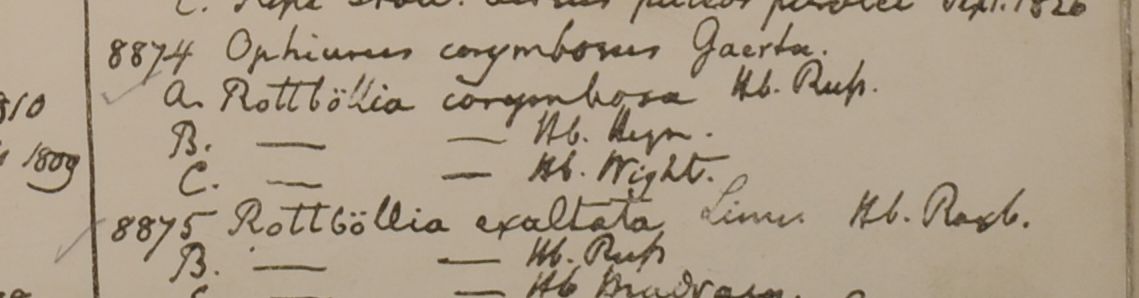 Sept. 1826
8874 Ophiurus corymbosus Gaertn.
810 A. Rottböllia corymbosa Hb. Rufs.
B. — — Hb. Heyn.
1809 C. — — Hb. Wight.
8875 Rottböllia exaltata Linn. Hb. Roxb.
B. — — Hb. Rufs
— — Hb